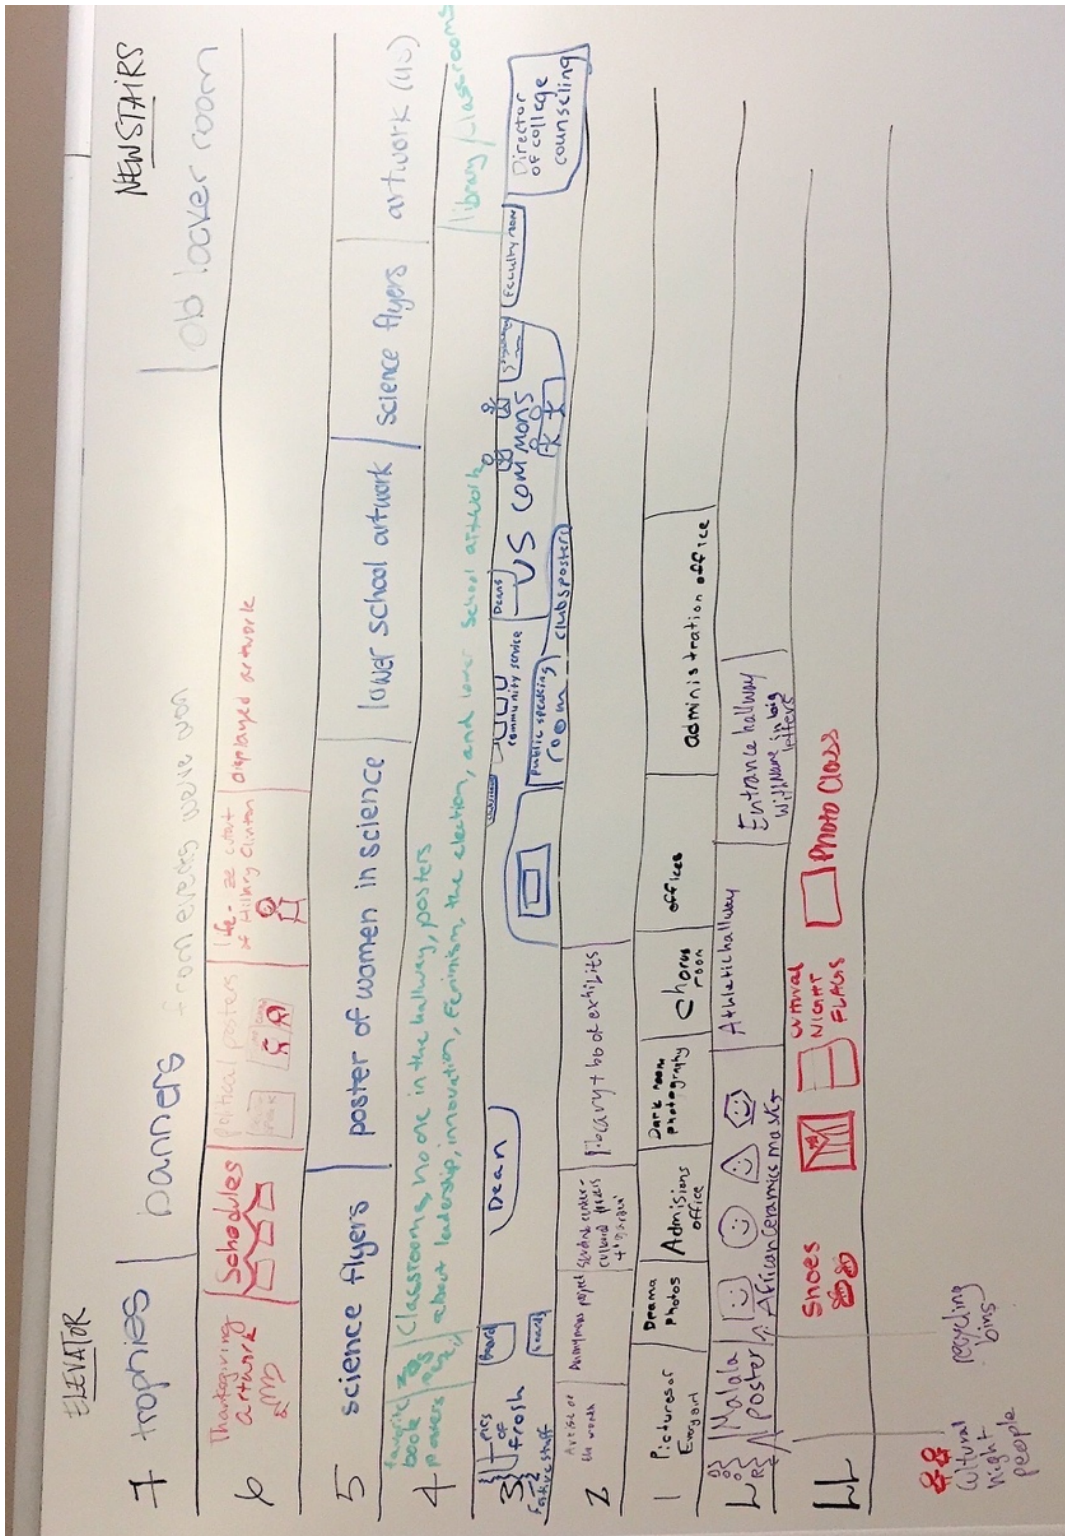 ELEVATOR
NEW STAIRS
7
trophies
banners
from events we've won
old locker room
6
Thanksgiving
artwork
Schedules
political posters
life-size cutout
of Hillary Clinton
displayed artwork
5
science flyers
poster of women in science
lower school artwork
science flyers
artwork (US)
4
favorite
book
posters
Classrooms, no one in the hallway, posters
about leadership, innovation, Feminism, the election, and lower School artwork
library/classrooms
3
pics
of
frosh
Festive stuff
Board
Dean
community service
public speaking
room
Deans
US COMMONS
clubs posters
Faculty room
Director
of college
counseling
2
Artist of
the month
Anonymous project
library + bb of exhibits
1
Pictures of
Every girl
Drama
Photos
Admisions
office
Dark room
photography
Chorus
room
offices
administration office
Malala
poster
African Ceramics masks
Athletic hallway
Entrance hallway
With Name in big
letters
LL
Shoes
CULTURAL
NIGHT
FLAGS
PHOTO CLASS
Cultural
night
people
recycling
bins